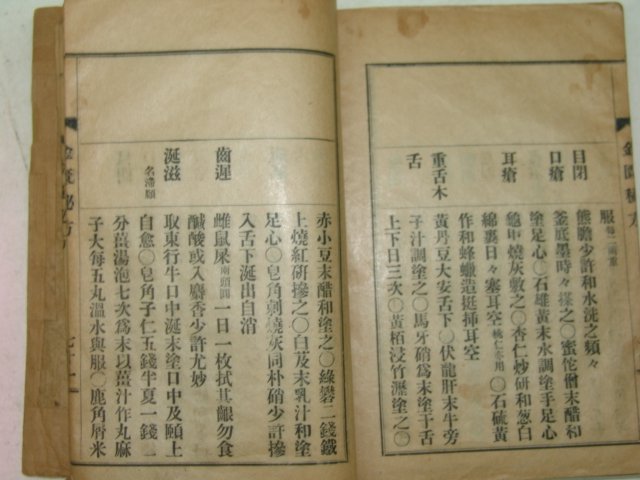 服每二兩重
目閉 熊膽少許和水洗之頻々
口瘡 釜底墨時々搽之〇蜜佗僧末醋和
塗足心〇石雄黃末水調塗手足心
耳瘡 龜甲燒灰敷之〇杏仁炒研和葱白
綿裹日々塞耳空桃仁亦用〇石硫黃
作和蜂蠟造挺揷耳空
重舌木舌 黃丹豆大安舌下〇伏龍肝末牛旁
子汁調塗之〇馬牙硝爲末塗干舌
上下日三次〇黃栢浸竹瀝塗之〇
赤小豆末醋和塗之〇綠礬二錢鐵
上燒紅硏摻之〇白及末乳汁和塗
足心〇皂角刺燒灰同朴硝少許摻
入舌下涎出自消
齒遲 雌鼠屎兩頭圓一日一枚拭其齦勿食
醎酸或入麝香少許尤妙
涎滋名滯頤 取東行牛口中涎末塗口中及頤上
自愈〇皂角子仁五錢半夏一錢二
分薑湯泡七次爲末以薑汁作丸麻
子大每五丸溫水與服〇鹿角屑米